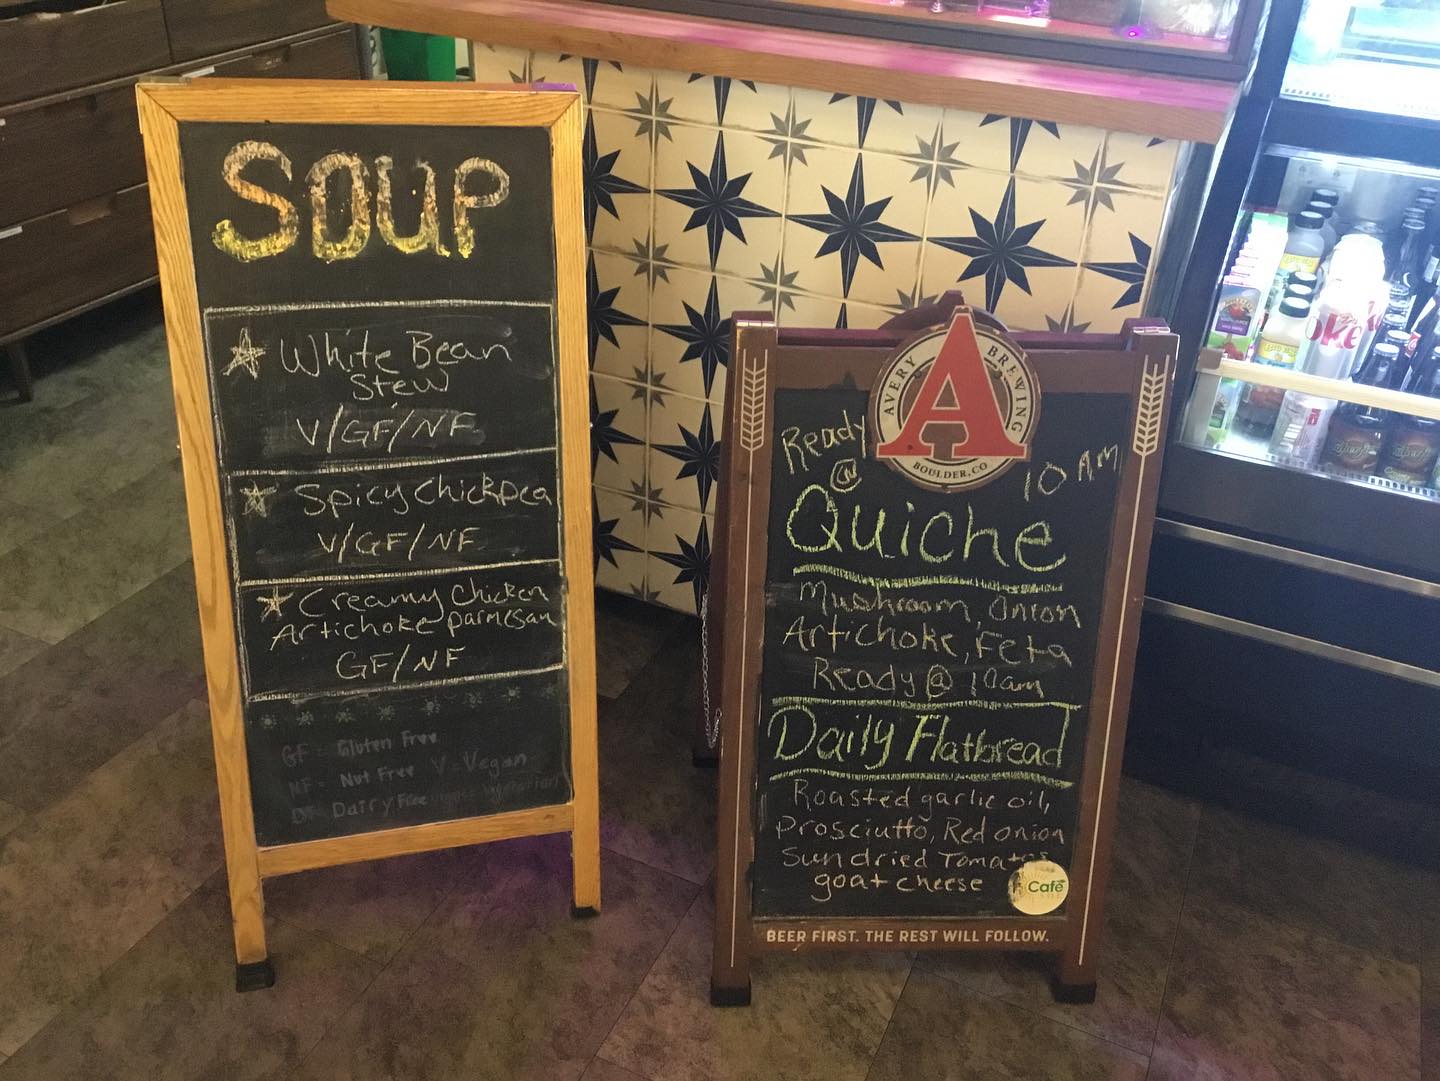 SOUP
White Bean
Stew
V/GF/NF
Spicy Chickpea
V/GF/NF
Creamy Chicken
Artichoke parmesan
GF/NF
GF = Gluten Free
NF = Nut Free V-Vegan
DF = Dairy Free
AVERY BREWING
A
BOULDER, CO
Ready
@
10 AM
Quiche
Mushroom, Onion
Artichoke, Feta
Ready @ 10am
Daily Flatbread
Roasted garlic oil,
Prosciutto, Red onion
Sundried Tomatoes
goat cheese
Café
BEER FIRST. THE REST WILL FOLLOW.
oke